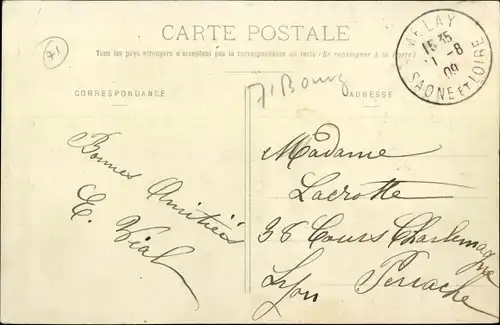 CARTE POSTALE
Tous les pays étrangers n'acceptent pas la correspondance au recto (Se renseigner à la Poste)
CORRESPONDANCE
ADRESSE
71
7' Bourg
MELAY
15 35
1 - 8
09
SAONE ET LOIRE
Bonnes
Amitiées
E. Vial
Madame
Lacrotte
38 Cours Charlemagne
Lyon Perrache